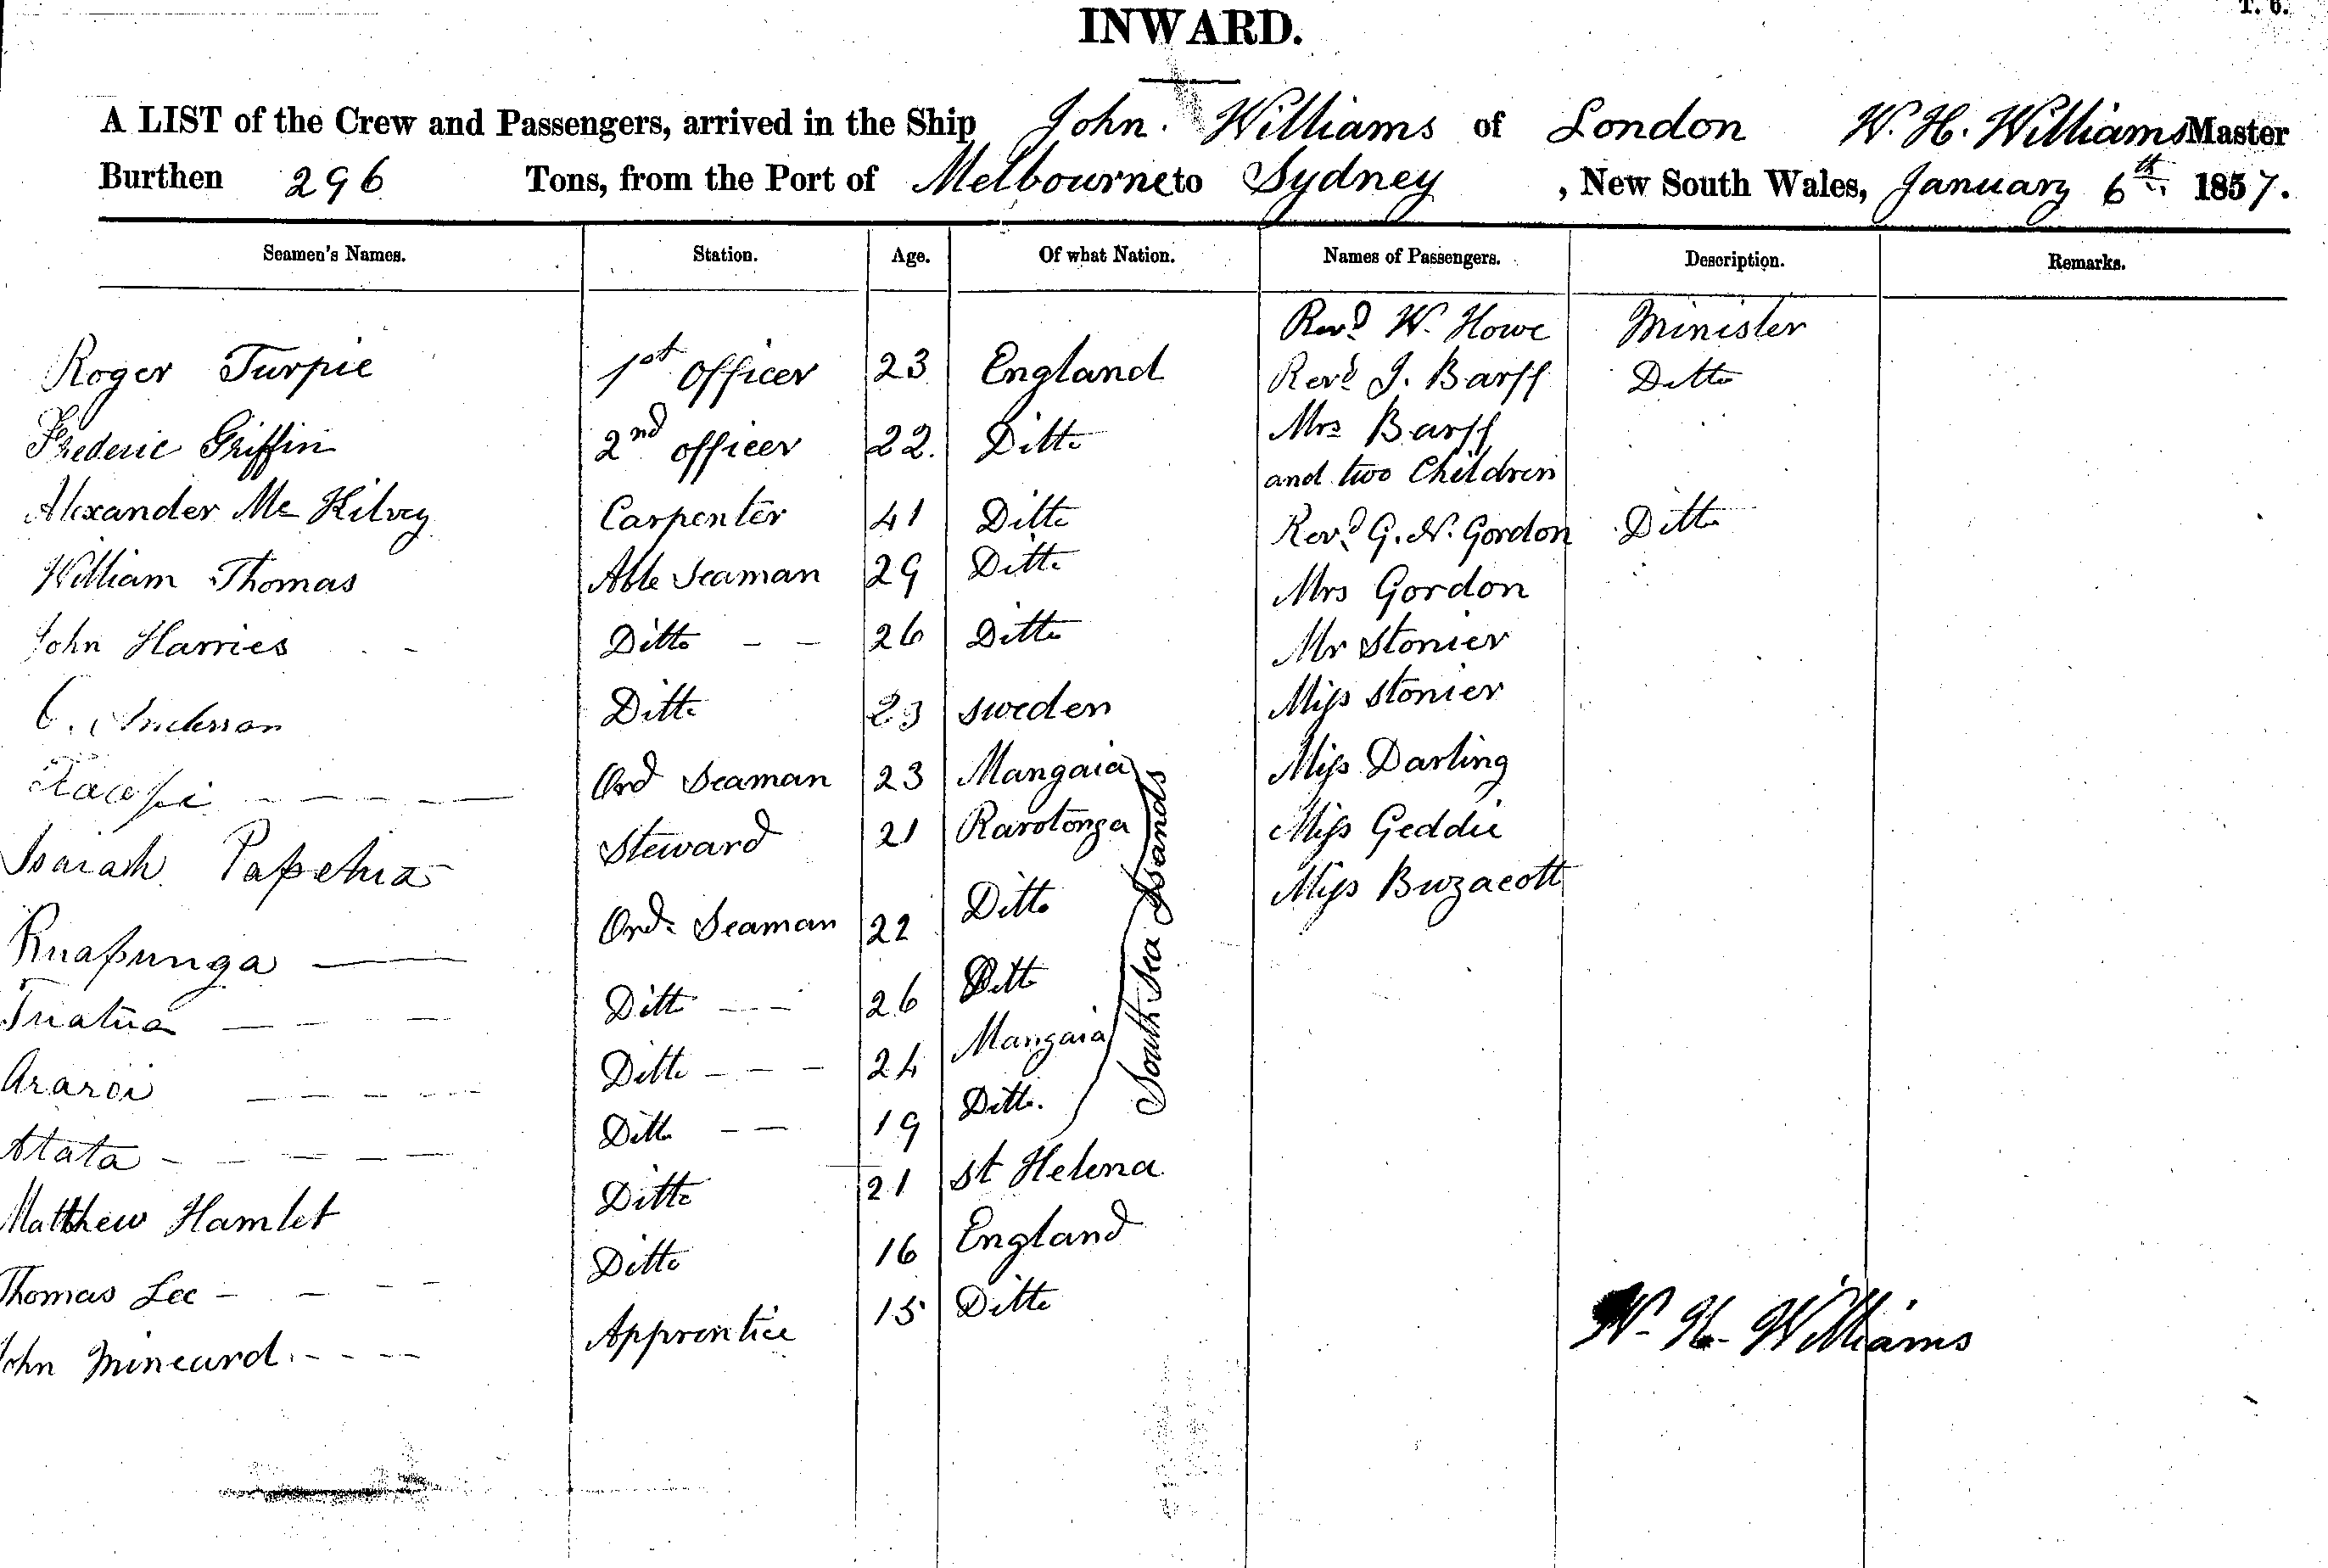 T. 6.
INWARD.
A LIST of the Crew and Passengers, arrived in the Ship John Williams of London W. H. Williams Master
Burthen 296 Tons, from the Port of Melbourne to Sydney, New South Wales, January 6th 1857.
Seamen's Names. Station. Age. Of what Nation. Names of Passengers. Description. Remarks.
Revd W. Howe Minister
Roger Turpie 1st Officer 23 England Revd J. Barff Ditto
Frederic Griffin 2nd officer 22. Ditto Mrs Barff
and two Children
Alexander Mc Kilvey Carpenter 41 Ditto Revd G. N. Gordon Ditto
William Thomas Able Seaman 29 Ditto Mrs Gordon
John Harries Ditto 26 Ditto Mr Stonier
C. Anderson Ditto 23 Sweden Miss Stonier
Ord Seaman 23 Mangaia Miss Darling
Isaiah Papehia Steward 21 Rarotonga Miss Geddie
Ruapunga Ord. Seaman 22 Ditto Miss Buzacott
Tuatua Ditto 26 Ditto
Araroi Ditto 24 Mangaia
Atata Ditto 19 Ditto.
South Sea Islands
Matthew Hamlet Ditto 21 St Helena
Thomas Lee Ditto 16 England
John Mineard. Apprentice 15 Ditto
W. H. Williams